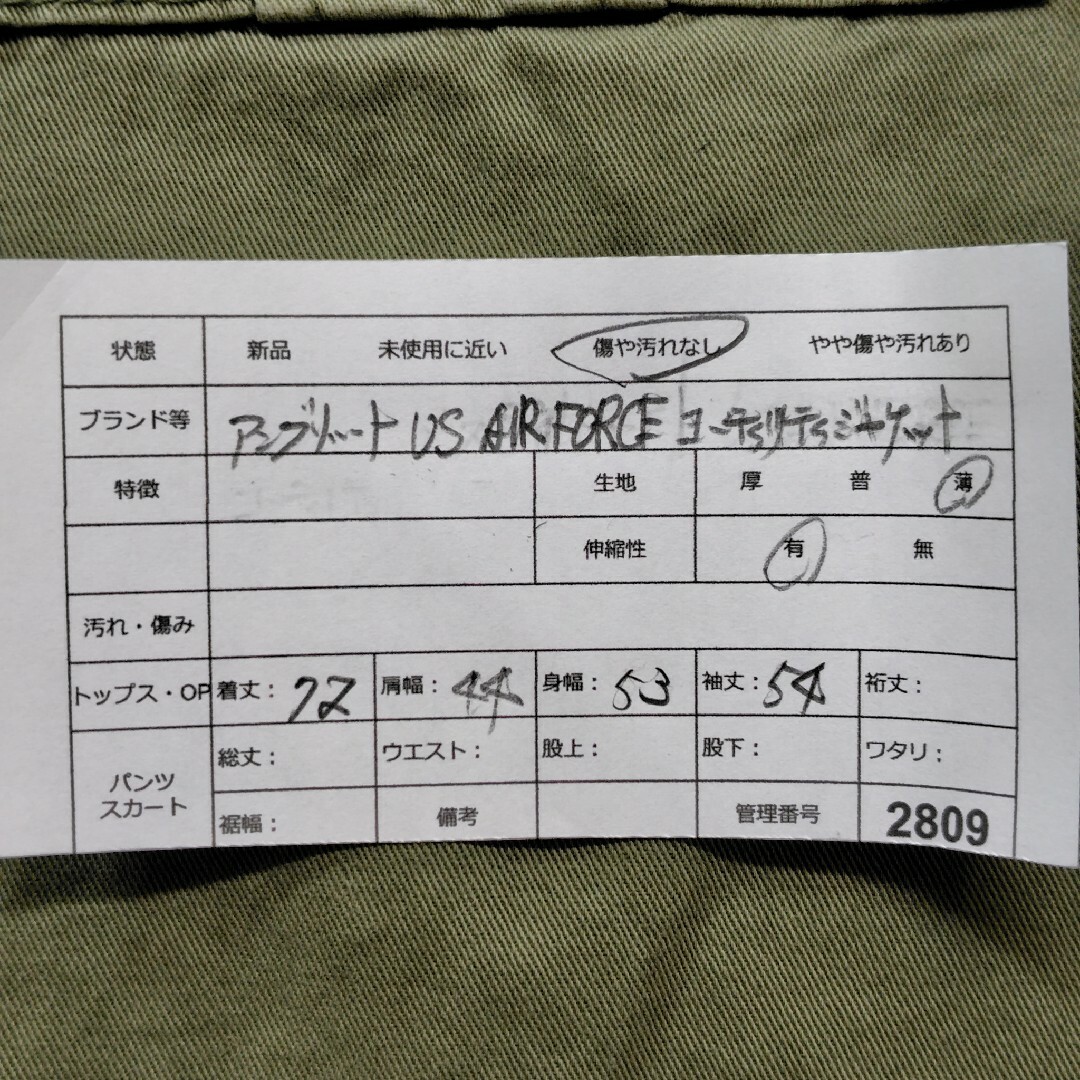 状態 新品 未使用に近い 傷や汚れなし やや傷や汚れあり
ブランド等 アンブリット US AIR FORCE ユーティリティジャケット
特徴 生地 厚 普 薄
伸縮性 有 無
汚れ・傷み
トップス・OP 着丈: 72 肩幅: 44 身幅: 53 袖丈: 54 裄丈:
パンツ スカート 総丈: ウエスト: 股上: 股下: ワタリ:
裾幅: 備考 管理番号 2809